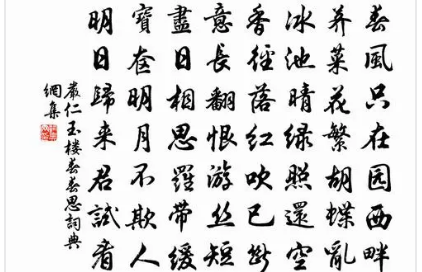 春風只在园西畔
荠菜花繁胡蝶亂
冰池晴绿照還空
香徑落红吹已断
意長翻恨游丝短
盡日相思羅带缓
寶奁明月不欺人
明日歸来君試看
嚴仁玉楼春春思詞典
網集